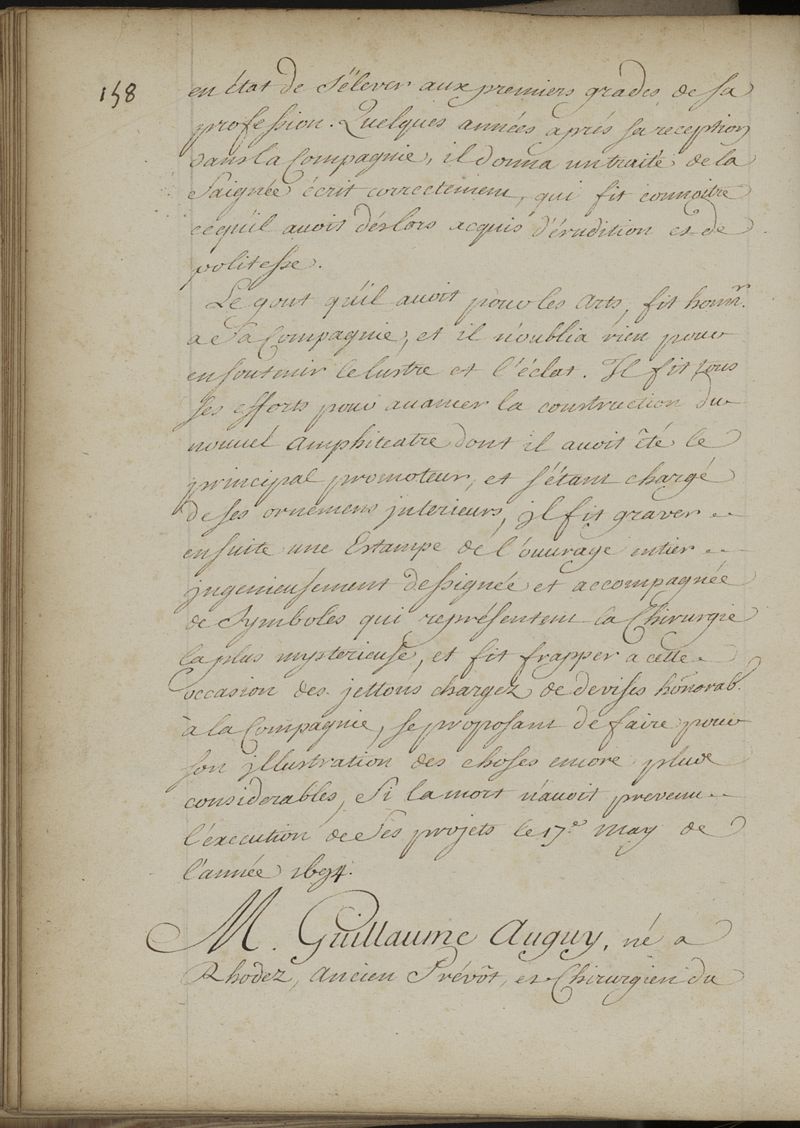 158
en état de s'élever aux premiers grades de sa
profession. Quelques années aprés sa reception
dans la Compagnie, il donna un traité de la
Saignée écrit correctement, qui fit connoitre
cequ'il avoit déslors acquis d'érudition et de
politesse.
Le gout qu'il avoit pour les Arts, fit honnr.
a Sa Compagnie, et il n'oublia rien pour
en soutenir le lustre et l'éclat. Il fit tous
ses efforts pour avancer la construction du
nouvel Amphiteatre dont il avoit été le
principal promoteur, et s'étant chargé
de ses ornemens jnterieurs, jl fit graver
ensuite une Estampe de l'ouvrage entier
jngenieusement dessignée et accompagnée
de Symboles qui représentent la Chirurgie
la plus mysterieuse, et fit frapper a cette
occasion des jettons chargez de devises honorab.
à la Compagnie, se proposant de faire pour
son jllustration des choses encore plus
considerables, Si la mort n'avoit prevenu
l'execution de Ses projets le 17.e May de
l'année 1694.
M. Guillaume Auguy, né a
Rhodez, Ancien Prévôt, et Chirurgien du